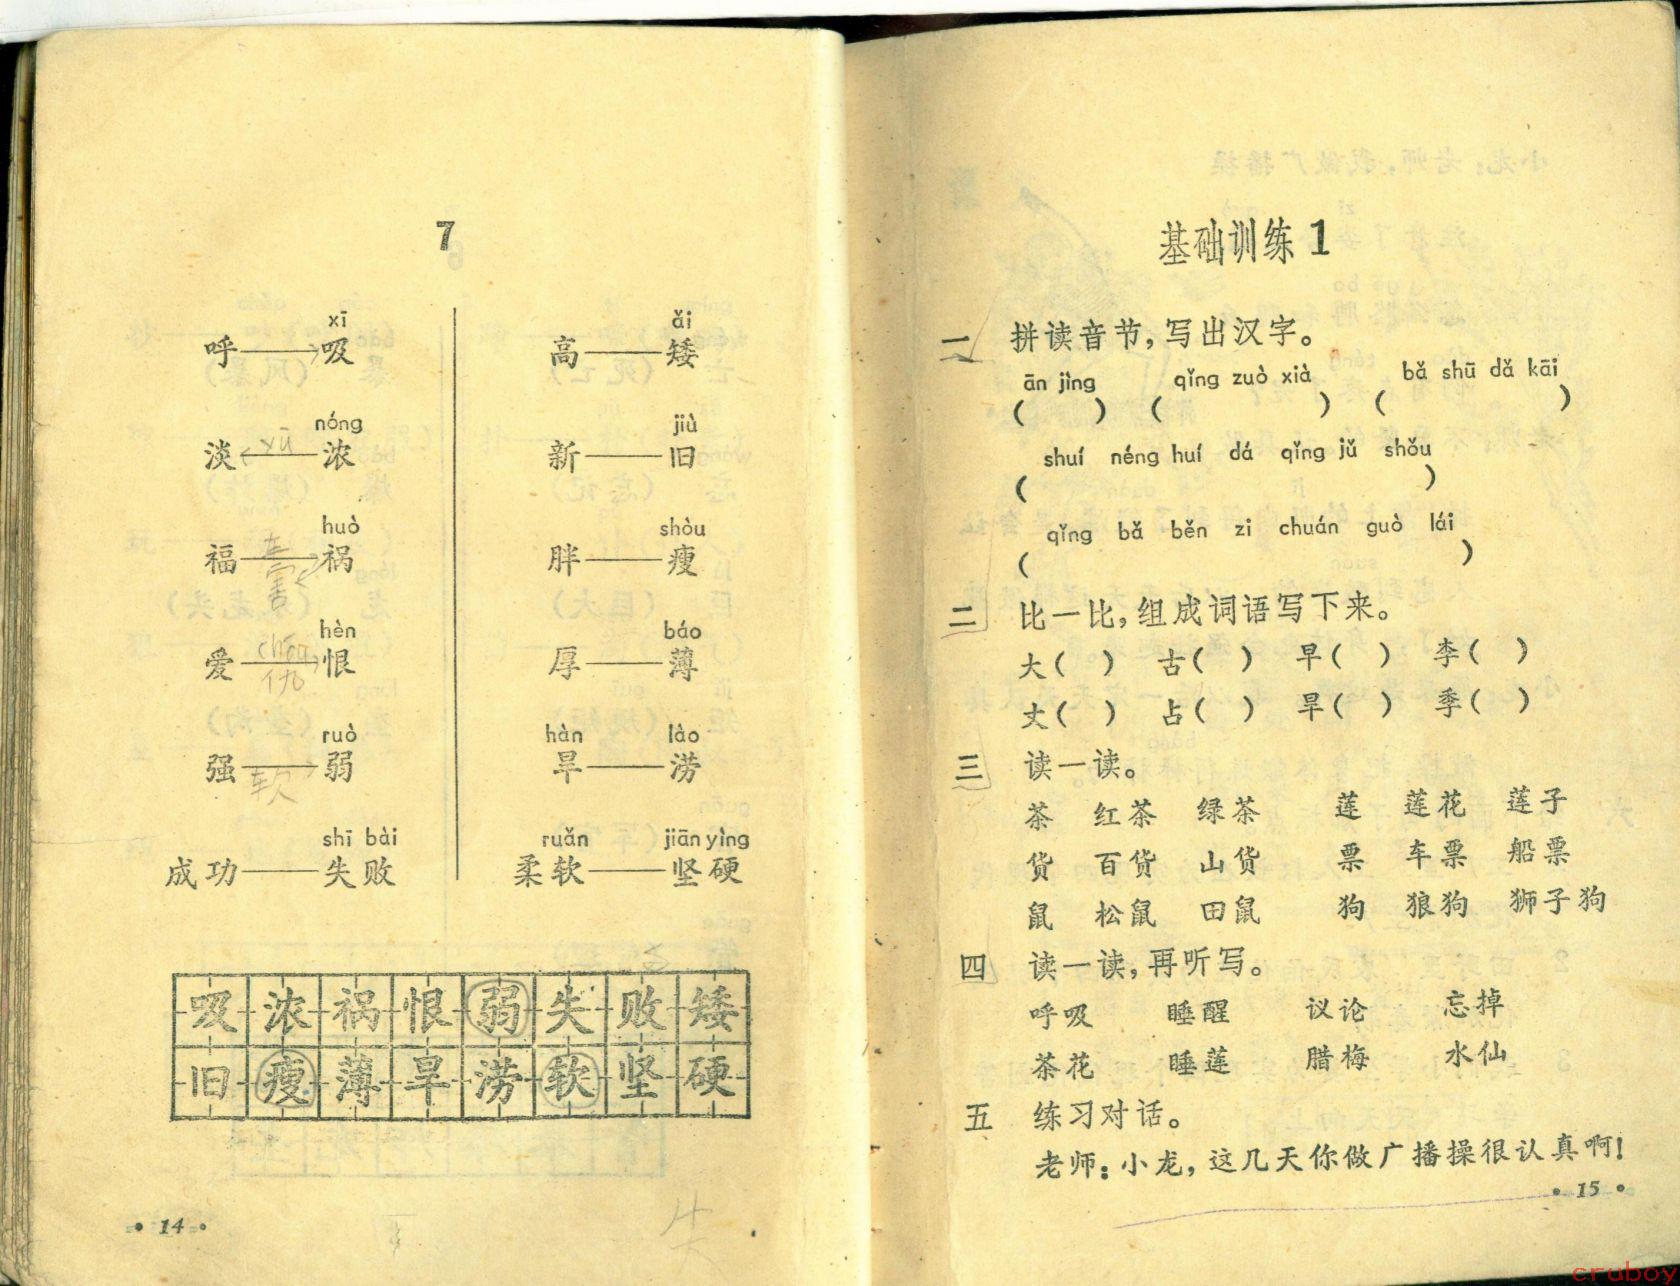 7
xī
呼——吸
nóng
淡——浓
xū
huò
福——祸
害
hèn
爱——恨
仇
ruò
强——弱
软
shī bài
成功——失败
ǎi
高——矮
jiù
新——旧
shòu
胖——瘦
báo
厚——薄
hàn lào
旱——涝
ruǎn jiān yìng
柔软——坚硬
吸浓祸恨弱失败矮
旧瘦薄旱涝软坚硬
失
• 14 •
基础训练 1
一 拼读音节，写出汉字。
ān jìng qǐng zuò xià bǎ shū dǎ kāi
( ) ( ) ( )
shuí néng huí dá qǐng jǔ shǒu
( )
qǐng bǎ běn zi chuán guò lái
( )
二 比一比，组成词语写下来。
大( ) 古( ) 早( ) 李( )
丈( ) 占( ) 旱( ) 季( )
三 读一读。
茶 红茶 绿茶 莲 莲花 莲子
货 百货 山货 票 车票 船票
鼠 松鼠 田鼠 狗 狼狗 狮子狗
四 读一读，再听写。
呼吸 睡醒 议论 忘掉
茶花 睡莲 腊梅 水仙
五 练习对话。
老师：小龙，这几天你做广播操很认真啊！
• 15 •
cruboy